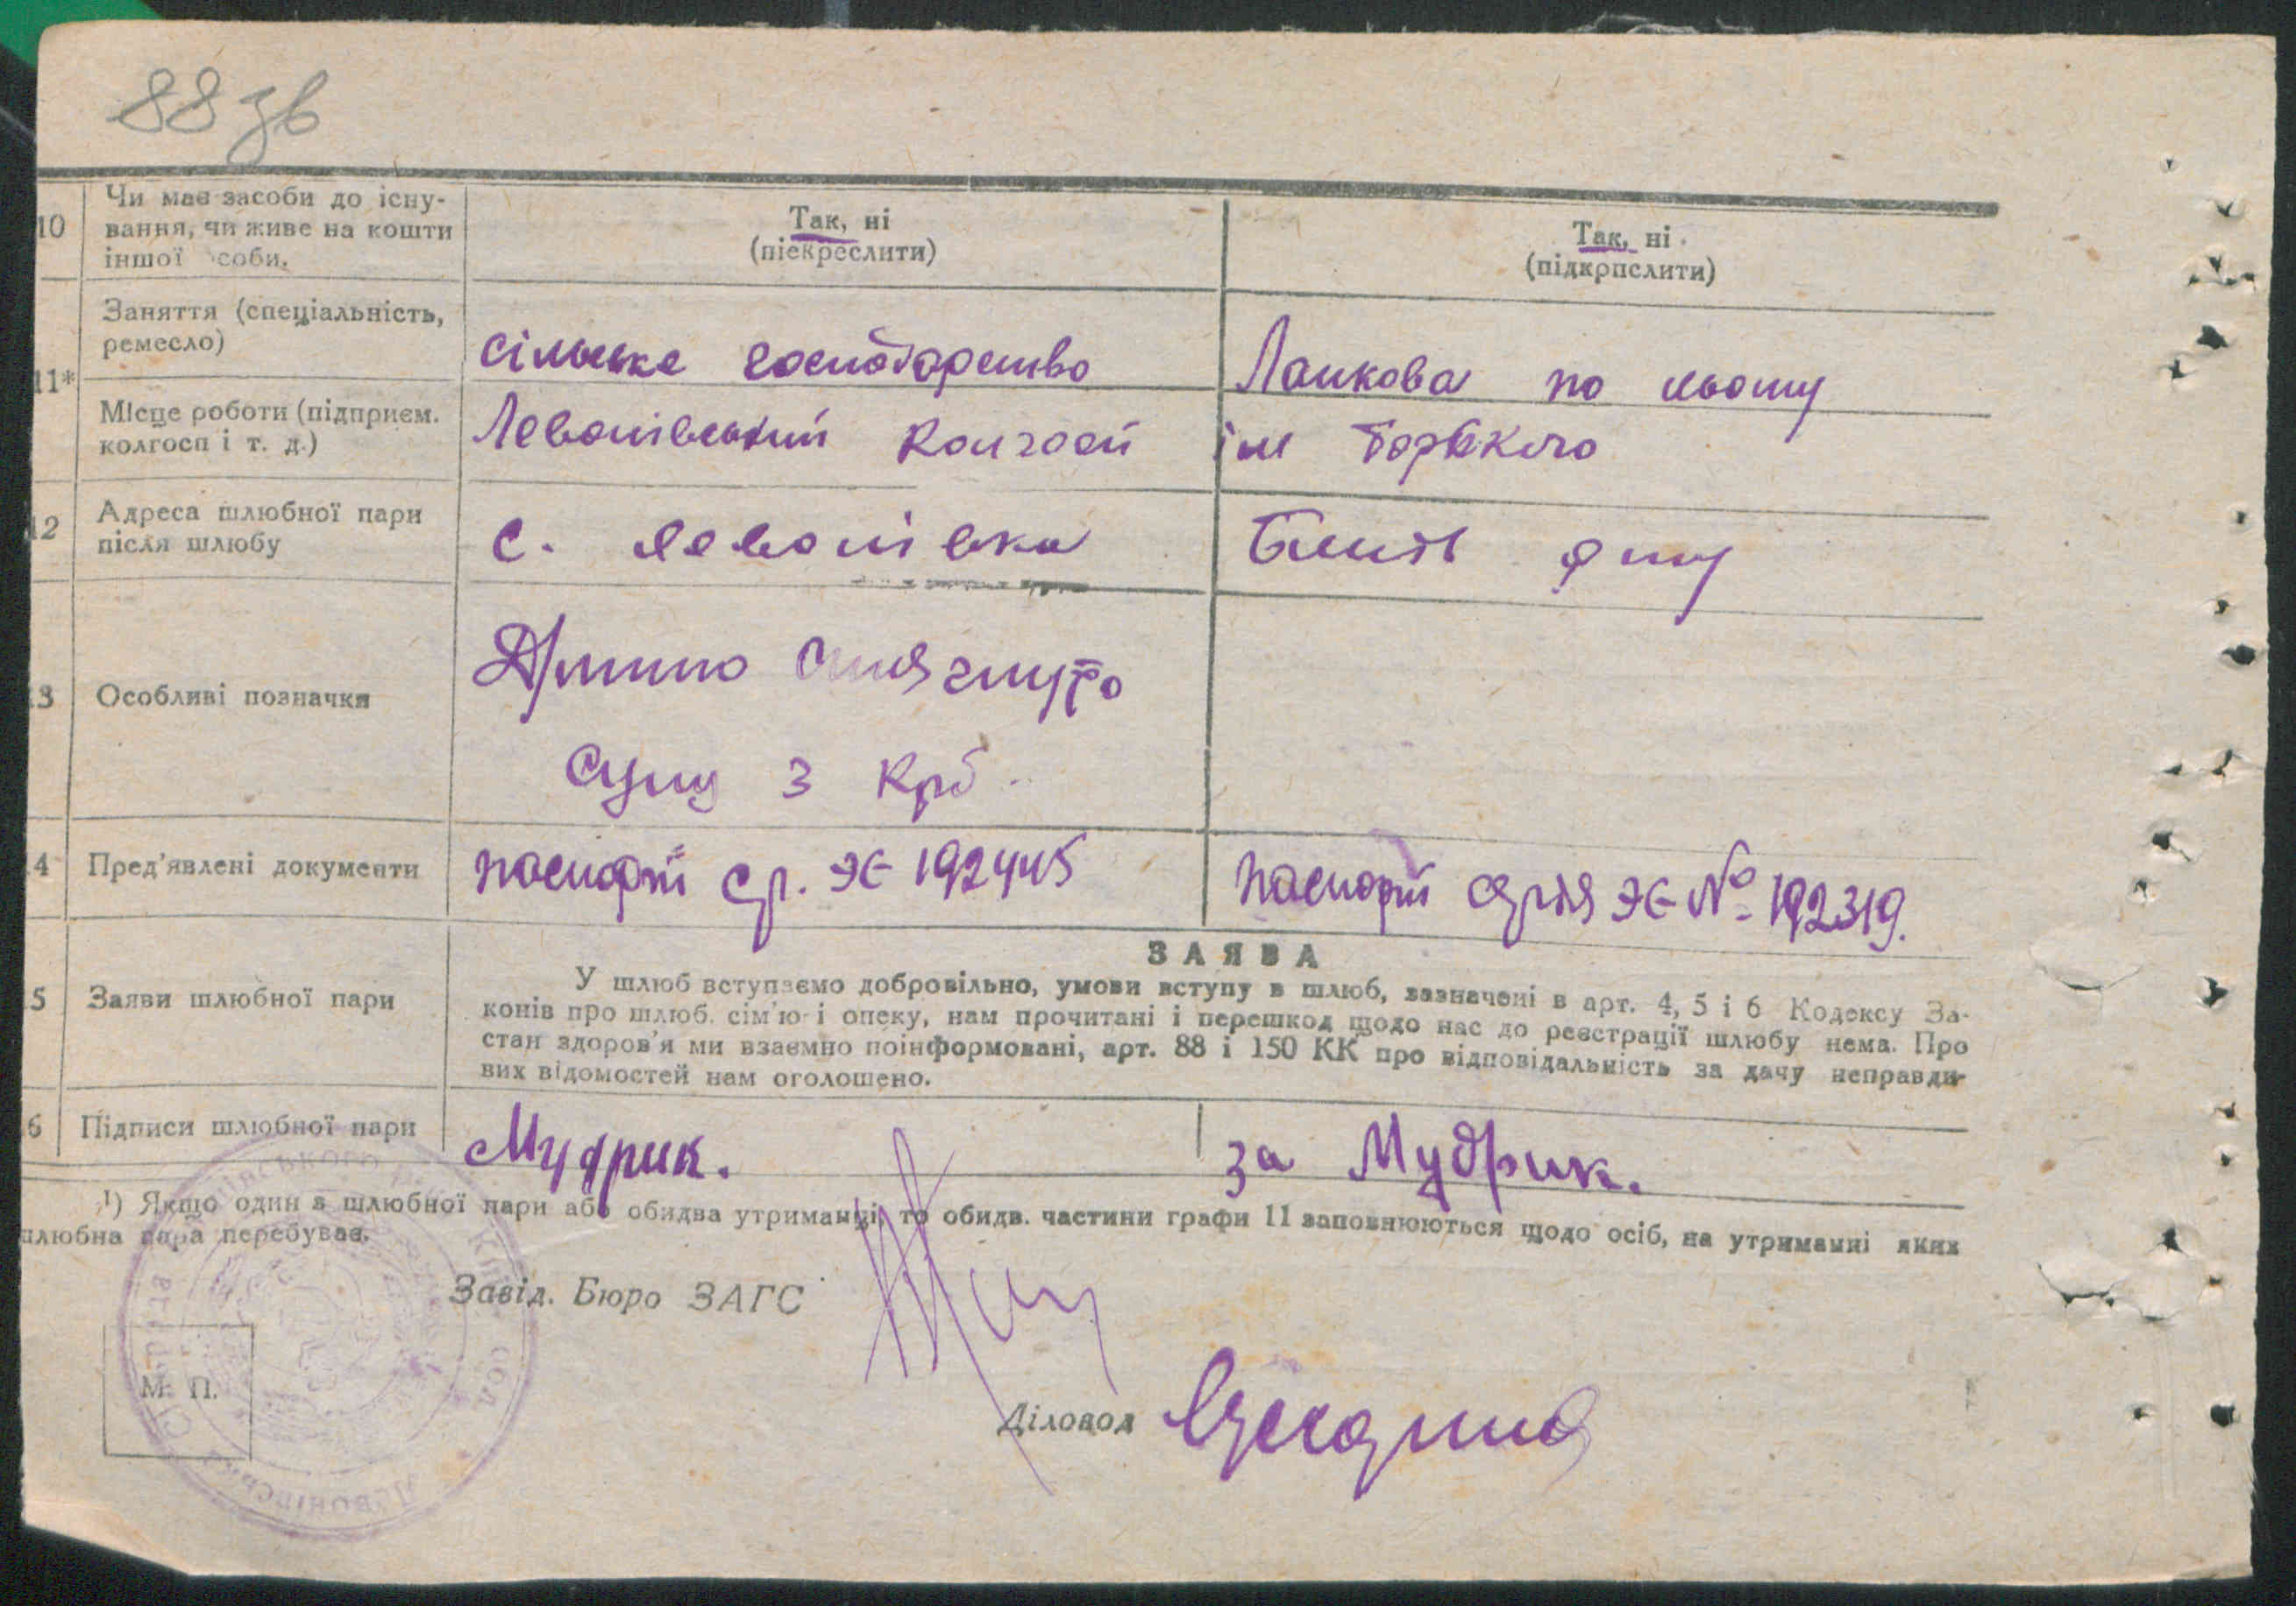 88 зв
10 Чи має засоби до існу-
вання, чи живе на кошти
іншої особи.
Так, ні
(піекреслити)
Так, ні
(підкрпслити)
11* Заняття (спеціальність,
ремесло)
сільське господарство
Ланкова по льону
Місце роботи (підприєм.
колгосп і т. д.)
Левонівський колгосп ім
12 Адреса шлюбної пари
після шлюбу
с. Левонівка
13 Особливі позначки
суму 3 крб.
4 Пред'явлені документи
паспорт ср. ЭЄ 192445
паспорт серія ЭЄ № 192319.
5 Заяви шлюбної пари
ЗАЯВА
У шлюб вступаємо добровільно, умови вступу в шлюб, зазначені в арт. 4, 5 і 6 Кодексу За-
конів про шлюб. сім'ю і опеку, нам прочитані і перешкод щодо нас до реєстрації шлюбу нема. Про
стан здоров'я ми взаємно поінформовані, арт. 88 і 150 КК про відповідальність за дачу неправди-
вих відомостей нам оголошено.
6 Підписи шлюбної пари
Мудрик.
за Мудрик.
¹) Якщо один з шлюбної пари або обидва утриманці, то обидв. частини графи 11 заповнюються щодо осіб, на утриманні яких
шлюбна пара перебуває.
Завід. Бюро ЗАГС
М. П.
Діловод